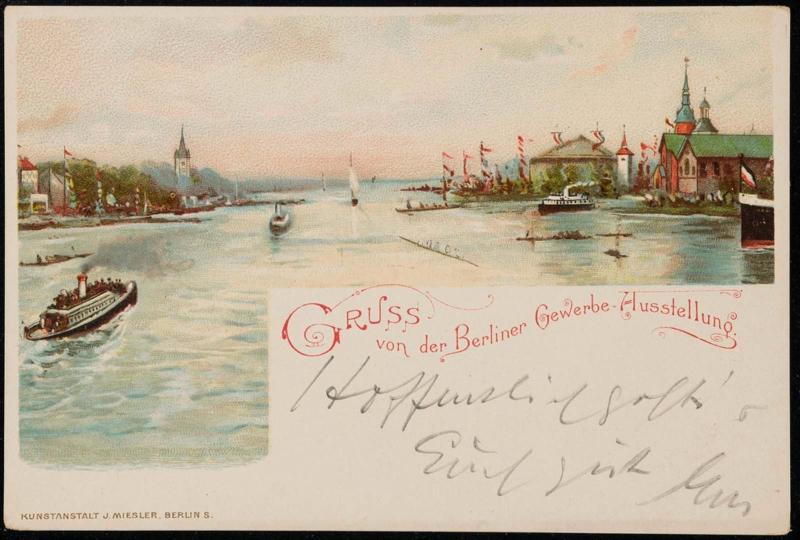 GRUSS
von der Berliner Gewerbe-Ausstellung.
Hoffentlich geht's
Euch gut
KUNSTANSTALT J. MIESLER, BERLIN S.